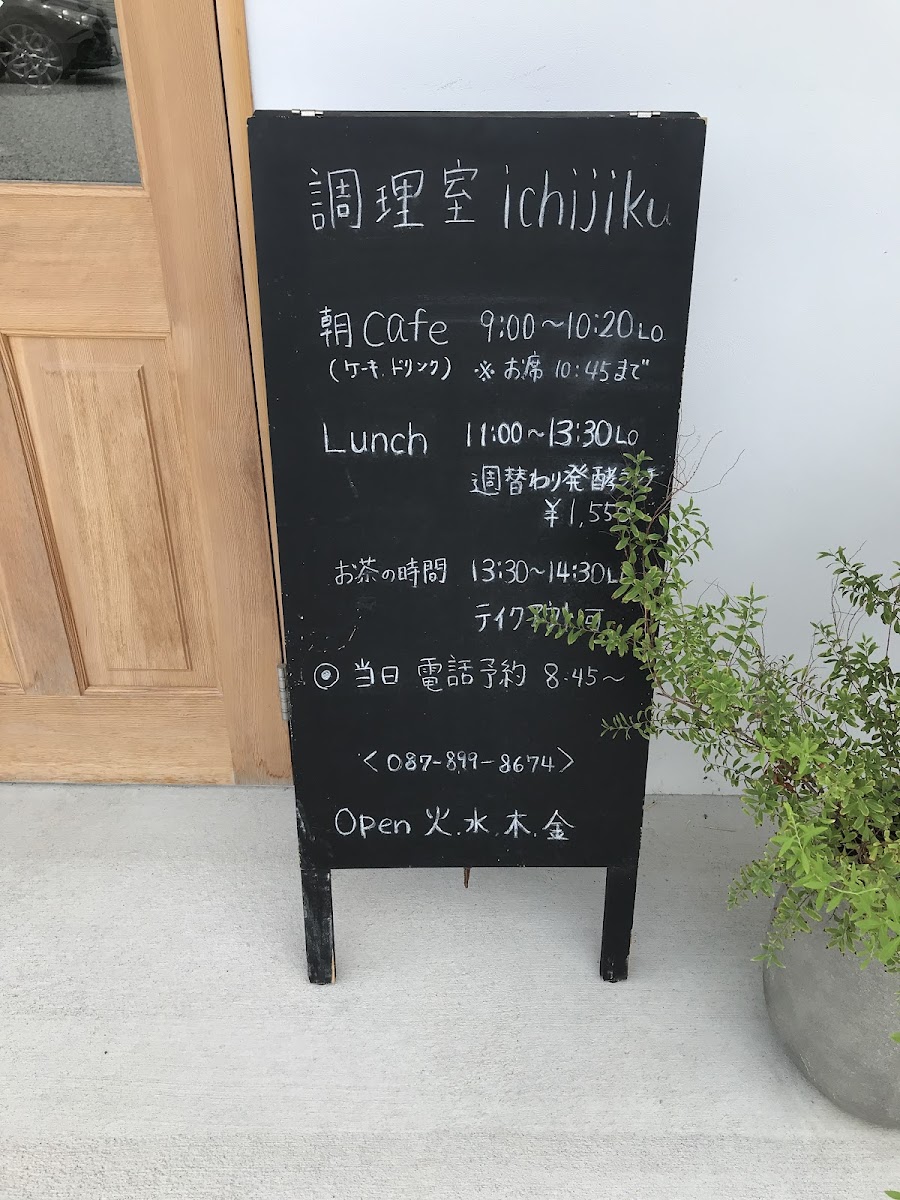 調理室 ichijiku
朝 cafe 9:00～10:20 LO
(ケーキ.ドリンク) ※お席 10:45まで
Lunch 11:00～13:30 LO
週替わり発酵
¥1,55
お茶の時間 13:30～14:30 L
テイク 可
◎ 当日 電話予約 8.45～
<087-899-8674>
Open 火.水.木.金